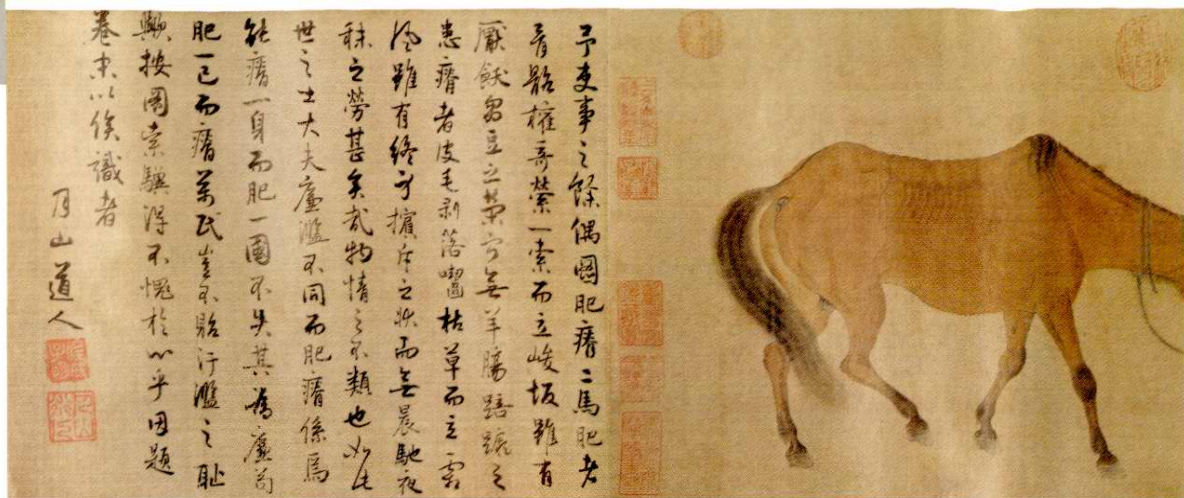 予吏事之餘偶圖肥瘠二馬肥者
骨骼權奇縈一索而立峻坂雖有
厭飫芻豆之榮寧無羊腸踣蹶之
患瘠者皮毛剥落嚙枯草而立霜
風雖有終身擯斥之狀而無晨馳夜
秣之勞甚矣哉物情之不類也如此
世之士大夫廉濫不同而肥瘠係焉
能瘠一身而肥一國不失其為廉苟
肥一己而瘠萬民豈不貽汙濫之恥
歟按圖索驥得不愧於心乎因題
卷末以俟識者
月山道人